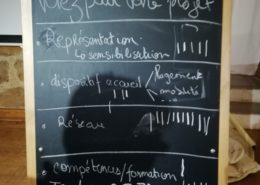 votez pour votre projet
• Représentation.
↳ sensibilisation
• dispositif accueil
logement
mobilité
• Réseau
• compétences/formation